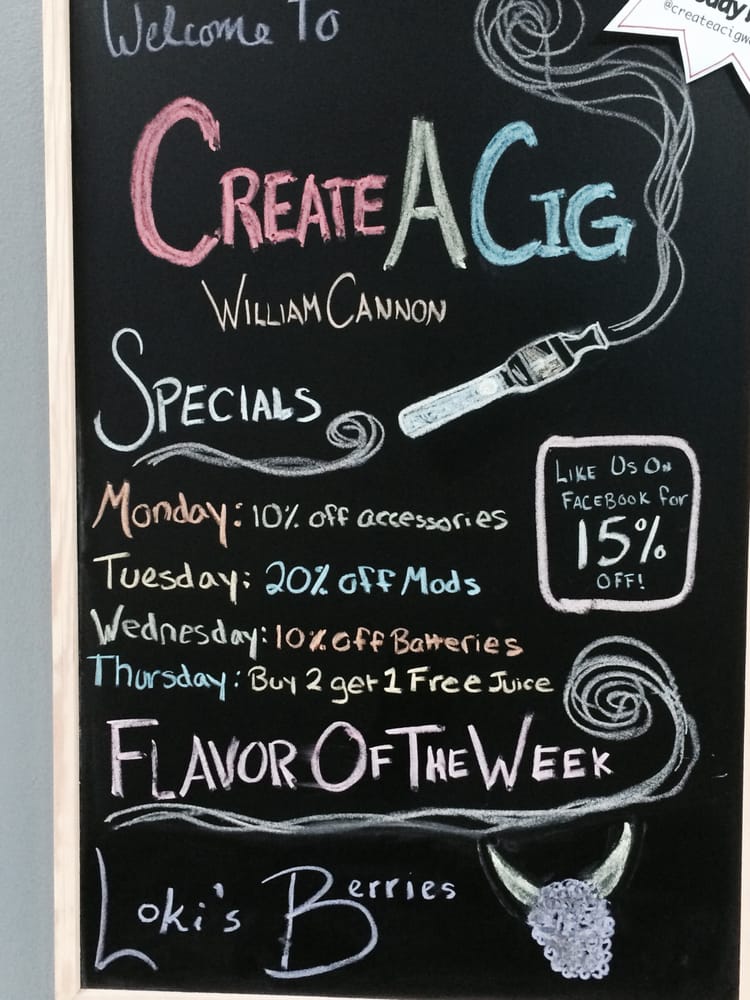 Welcome To
CREATE A CIG
WILLIAM CANNON
SPECIALS
Monday: 10% off accessories
Tuesday: 20% off Mods
Wednesday: 10% off Batteries
Thursday: Buy 2 get 1 Free Juice
LIKE US ON
FACEBOOK for
15%
OFF!
FLAVOR OF THE WEEK
Loki's Berries